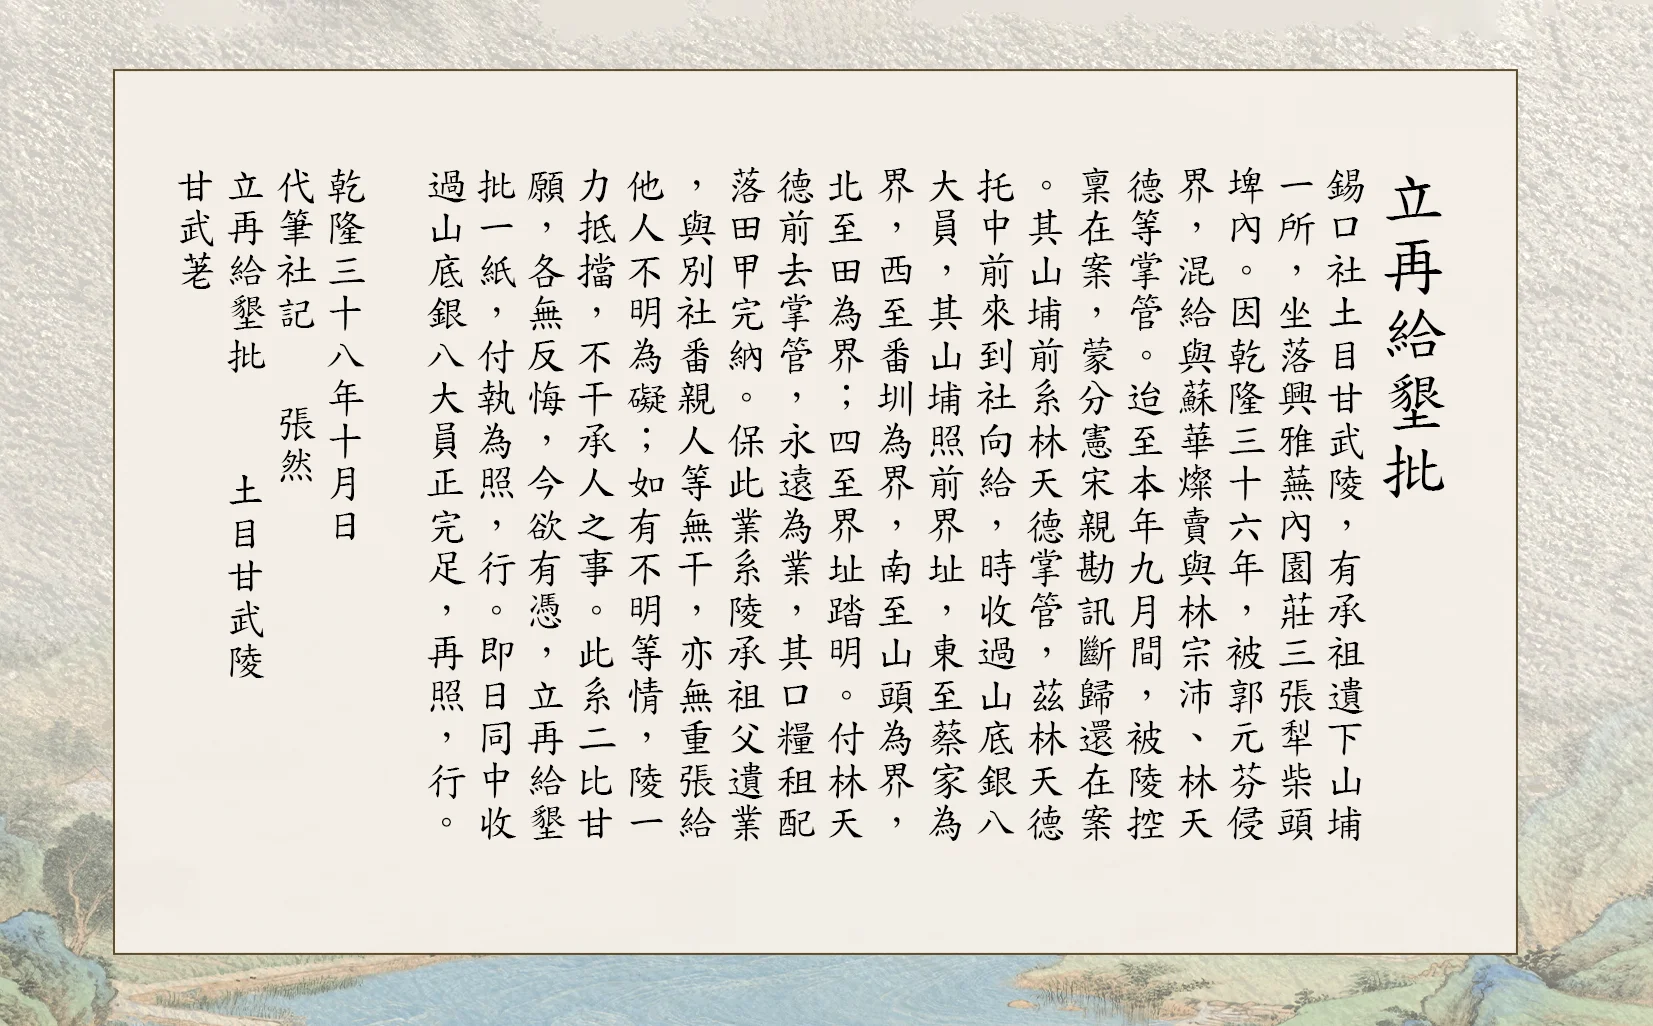 立再給墾批
錫口社土目甘武陵，有承祖遺下山埔
一所，坐落興雅蕪內園莊三張犁柴頭
埤內。因乾隆三十六年，被郭元芬侵
界，混給與蘇華燦賣與林宗沛、林天
德等掌管。迨至本年九月間，被陵控
稟在案，蒙分憲宋親勘訊斷歸還在案
。其山埔前系林天德掌管，茲林天德
托中前來到社向給，時收過山底銀八
大員，其山埔照前界址，東至蔡家為
界，西至番圳為界，南至山頭為界，
北至田為界；四至界址踏明。付林天
德前去掌管，永遠為業，其口糧租配
落田甲完納。保此業系陵承祖父遺業
，與別社番親人等無干，亦無重張給
他人不明為礙；如有不明等情，陵一
力抵擋，不干承人之事。此系二比甘
願，各無反悔，今欲有憑，立再給墾
批一紙，付執為照，行。即日同中收
過山底銀八大員正完足，再照，行。
乾隆三十八年十月日
代筆社記　張然
立再給墾批　　土目甘武陵
甘武荖